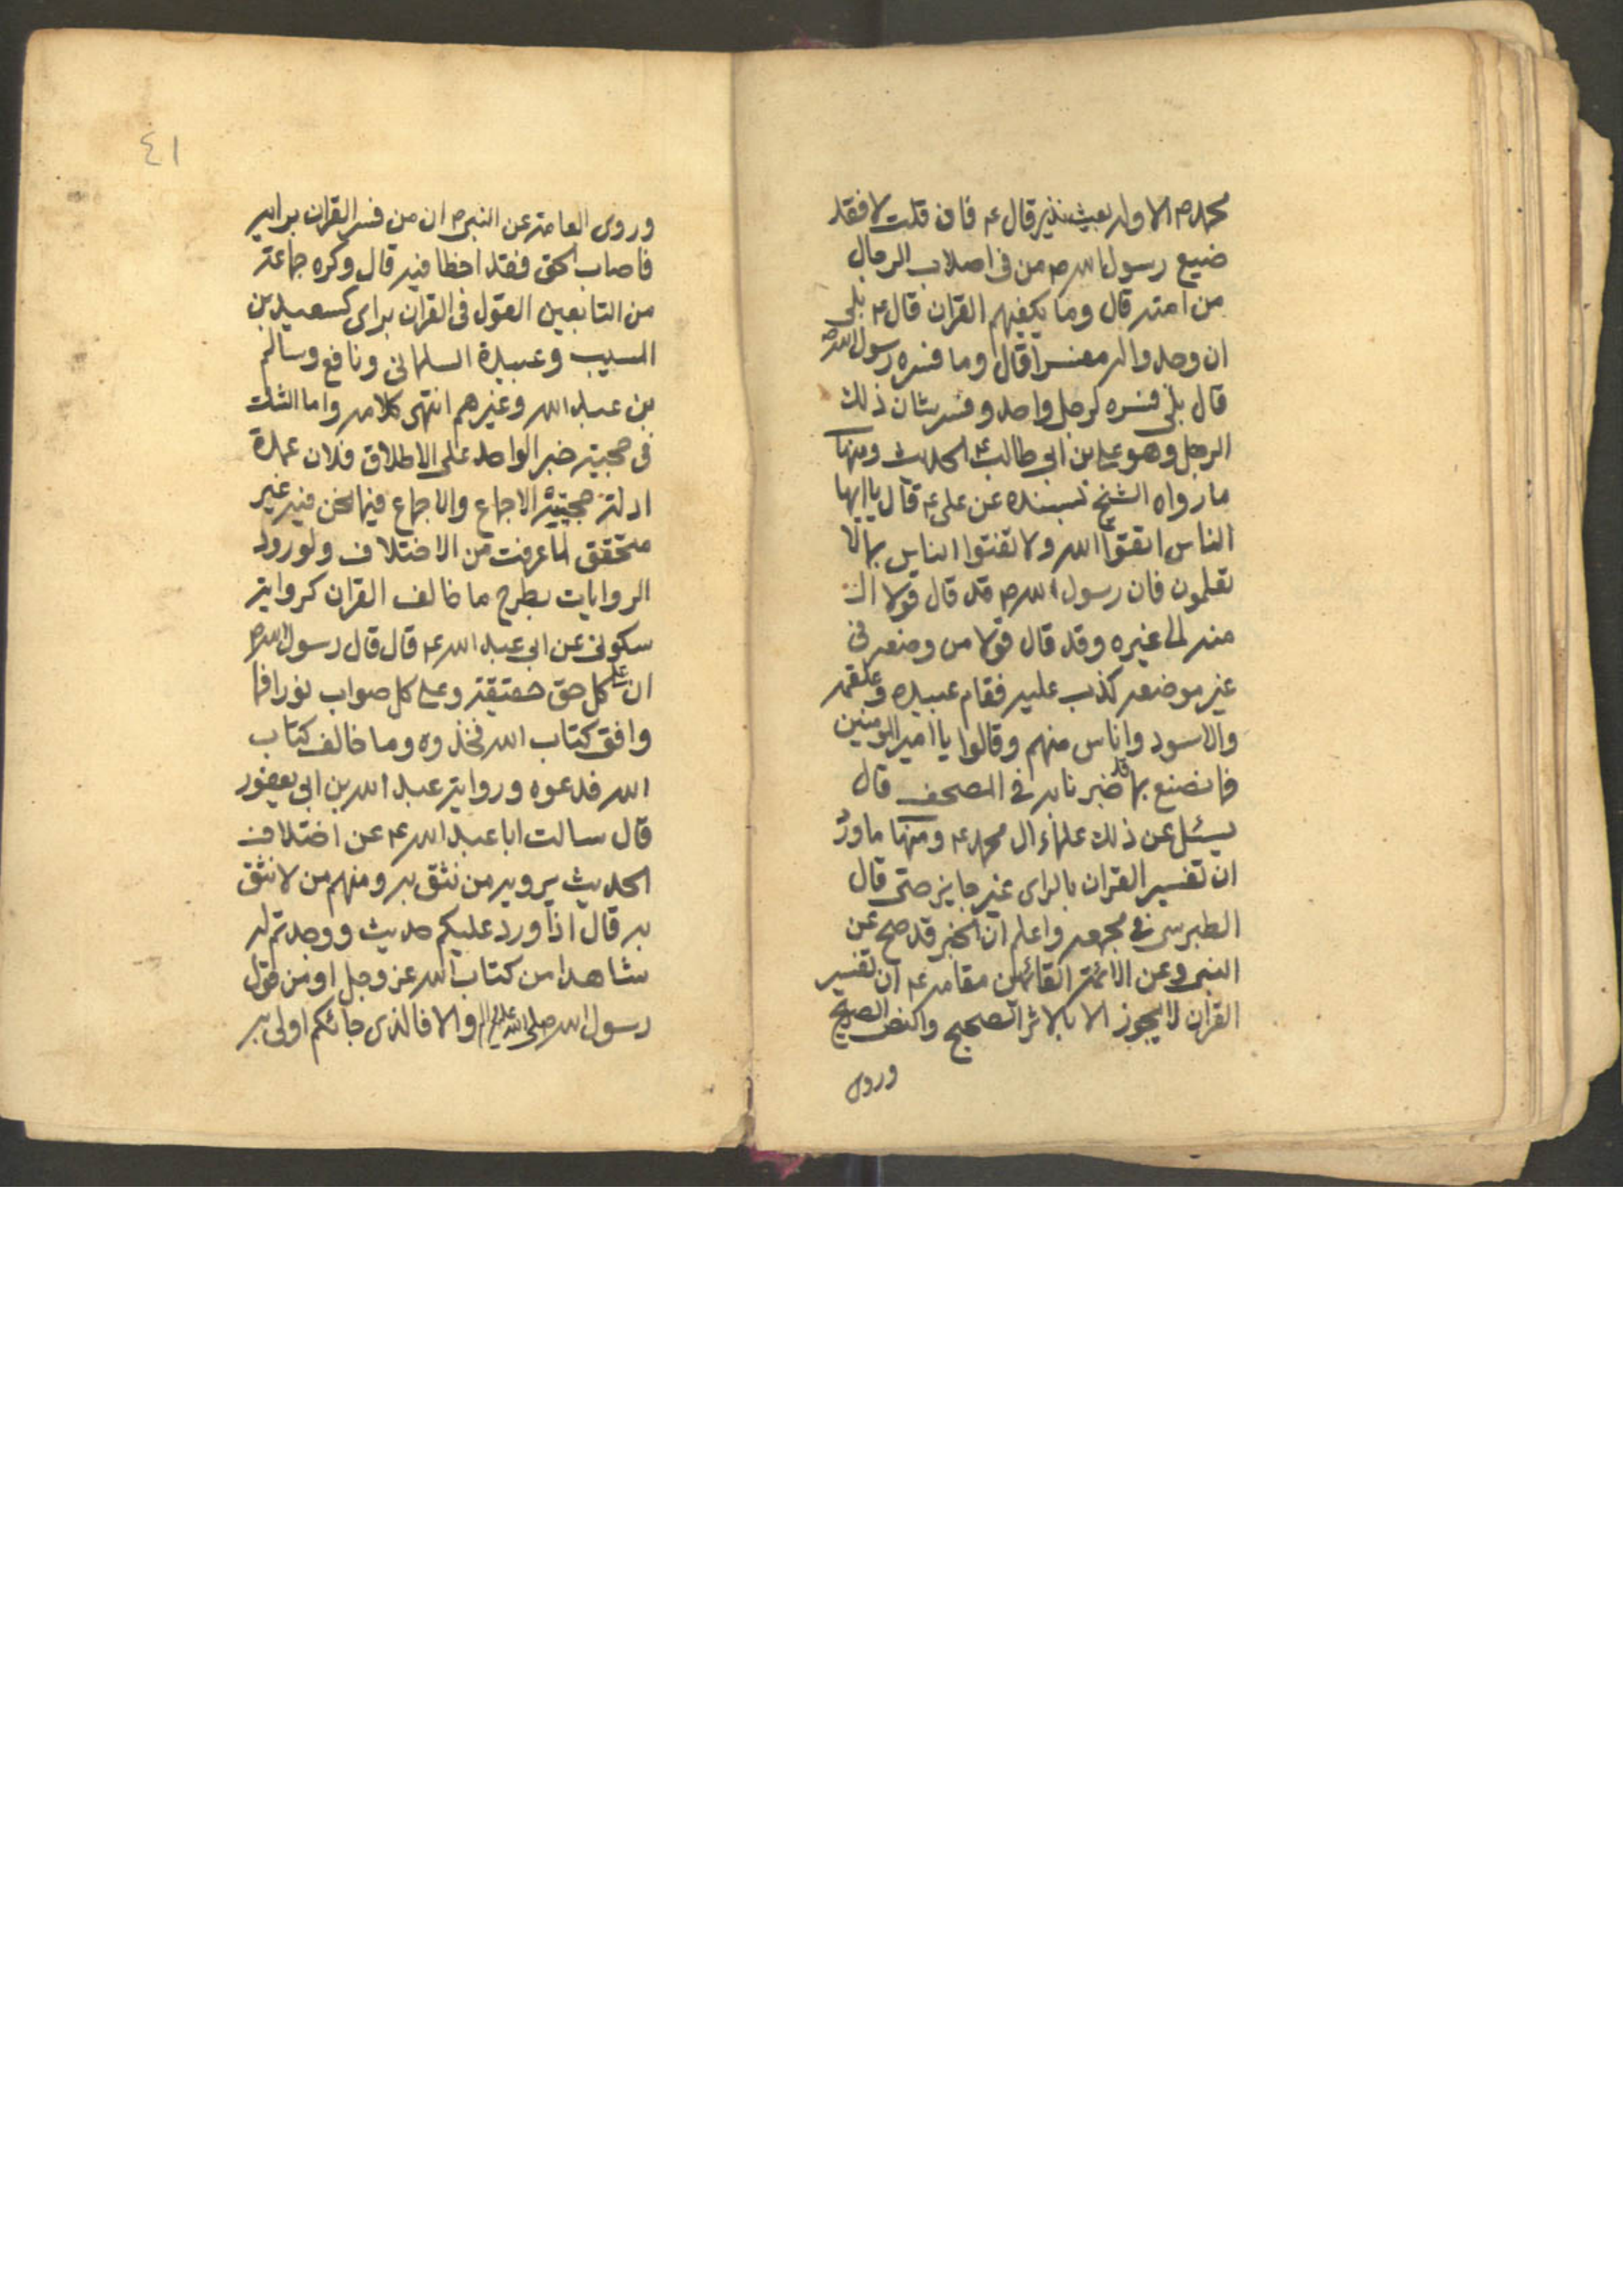 محمد ص الا وله بعيث نذير قال ع فان قلت لا فقد
ضيع رسول الله ص من في اصلاب الرجال
من امته قال وما يكفيهم القران قال ع بلى
ان وجدوا له مفسرا قال وما فسره رسول الله ص
قال بلى فسره لرجل واحد وفسر شان ذلك
الرجل وهو علي بن ابي طالب ع الحديث ومنها
ما رواه الشيخ بسنده عن علي ع قال يا ايها
الناس اتقوا الله ولا تفتوا الناس بما لا
تعلمون فان رسول الله ص قد قال قولا ال
منه الى غيره وقد قال قولا من وضعه في
غير موضعه كذب عليه فقام عبيده وعلقمه
والاسود واناس منهم وقالوا يا امير المومنين
فما نصنع بما قد خبرنا به في المصحف قال
يسئل عن ذلك علماء ال محمد ع ومنها ما ورد
ان تفسير القران بالراى غير جايز حتى قال
الطبرسي في مجمعه واعلم ان الخبر قد صح عن
النبي وعن الائمة القائمين مقامه ع ان تفسير
القران لا يجوز الا بالاثر الصحيح والنص الصريح
وروى
٤١
وروى العامة عن النبي ص ان من فسر القران برايه
فاصاب الحق فقد اخطا فيه قال وكره جماعة
من التابعين القول في القران براى كسعيد بن
المسيب وعبيدة السلماني ونافع وسالم
بن عبد الله وغيرهم انتهى كلامه واما الثلث
في حجية خبر الواحد على الاطلاق فلان عمدة
ادلة حجيته الاجماع والاجماع فيما نحن فيه غير
متحقق لما عرفت من الاختلاف ولورود
الروايات بطرح ما خالف القران كرواية
سكوني عن ابي عبد الله ع قال قال رسول الله ص
ان على كل حق حقيقة وعلى كل صواب نورا فما
وافق كتاب الله فخذوه وما خالف كتاب
الله فدعوه ورواية عبد الله بن ابي يعفور
قال سالت ابا عبد الله ع عن اختلاف
الحديث يرويه من نثق به ومنهم من لا نثق
به قال اذا ورد عليكم حديث ووجدتم له
شاهدا من كتاب الله عز وجل او من قول
رسول الله صلى الله عليه واله والا فالذى جائكم اولى به